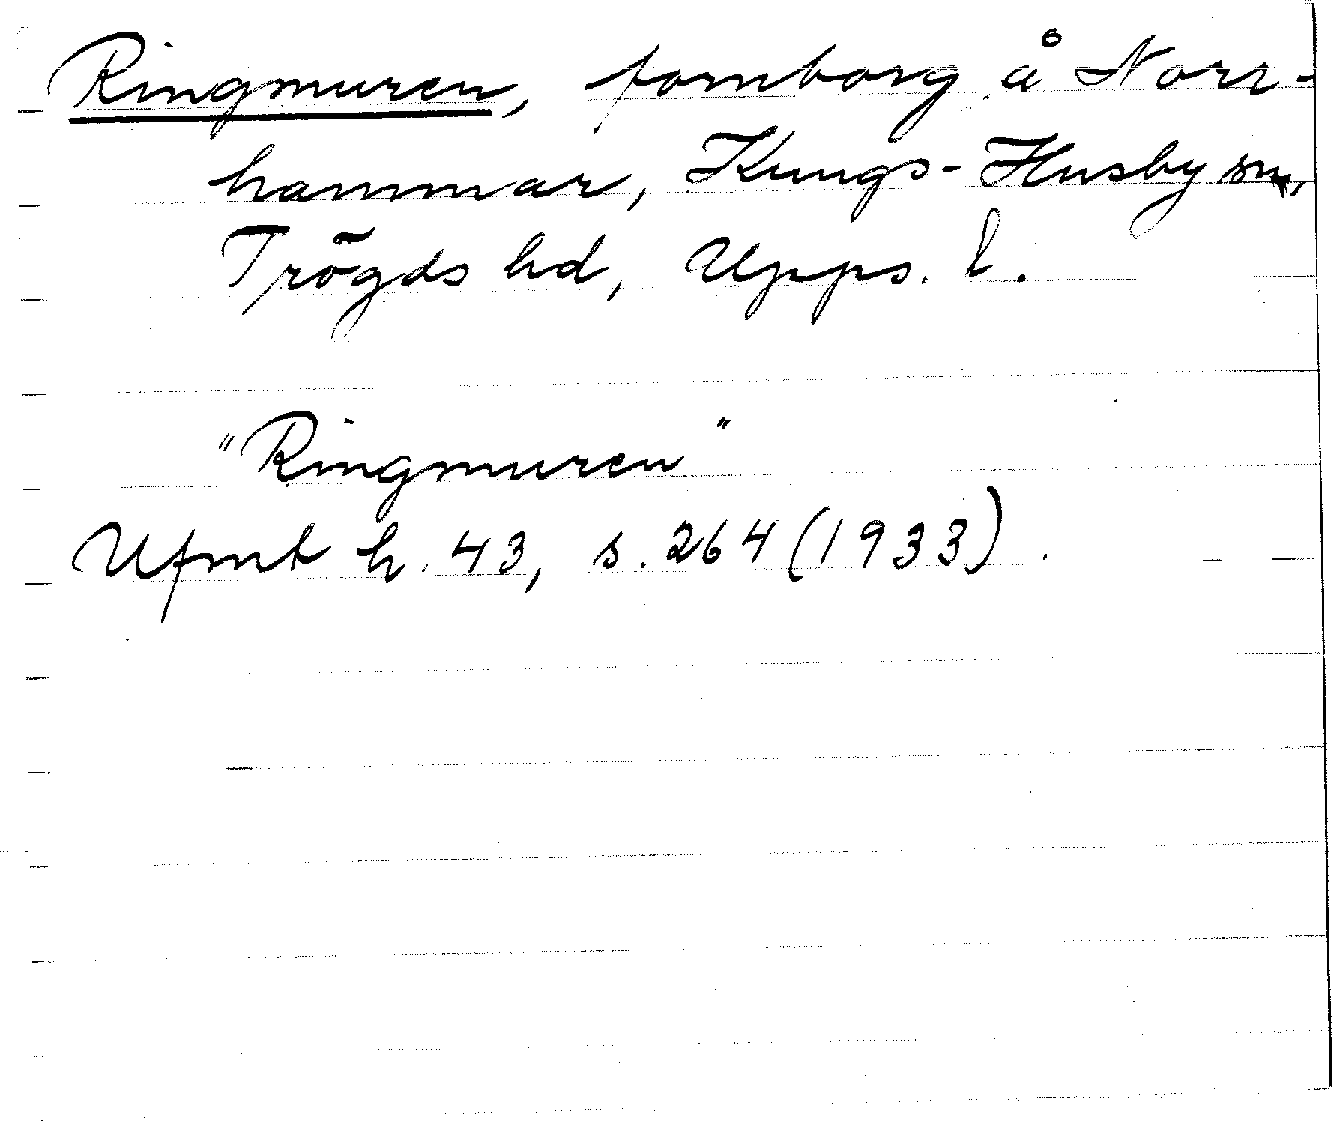 Ringmuren, fornborg å Norr-
hammar, Kungs-Husby sn,
Trögds hd, Upps. l.
"Ringmuren"
Ufmt h. 43, s. 264 (1933).